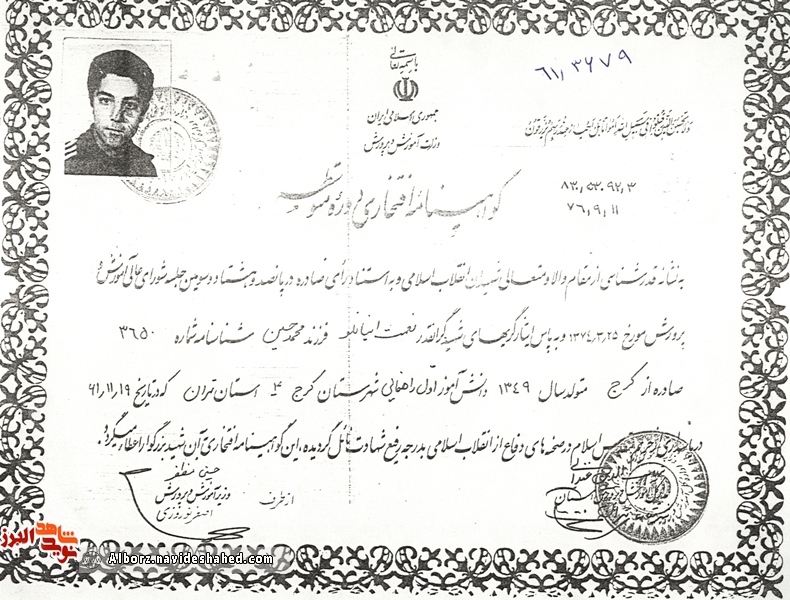 باسمه تعالی
جمهوری اسلامی ایران
وزارت آموزش و پرورش
۶۱٫۳۶۷۹
۸۳٫۵۳٫۹۲٫۳
۷۶٫۹٫۱۱
گواهینامه افتخاری دوره متوسطه
به نشانه قدرشناسی از مقام والا و متعالی شهیدان انقلاب اسلامی و به استناد رأی صادره در پانصد و هشتاد و سومین جلسه شورای عالی آموزش و
پرورش مورخ ۱۳۷۴٫۳٫۲۵ و به پاس ایثارگریهای شهید گرانقدر نعمت انبانلو فرزند محمدحسین شناسنامه شماره ۳۶۵۰
صادره از کرج متولد سال ۱۳۴۹ دانش آموز اول راهنمایی شهرستان کرج ۴ استان تهران که در تاریخ ۶۱٫۱۱٫۱۹
در پاسداری از حریم مقدس اسلام در صحنه های دفاع از انقلاب اسلامی بدرجه رفیع شهادت نائل گردیده، این گواهینامه افتخاری آن شهید بزرگوار اعطاء میگردد.
حسین مظفر
وزیر آموزش و پرورش
از طرف
اصغر نوروزی
نوید شاهد البرز
Alborz.navideshahed.com